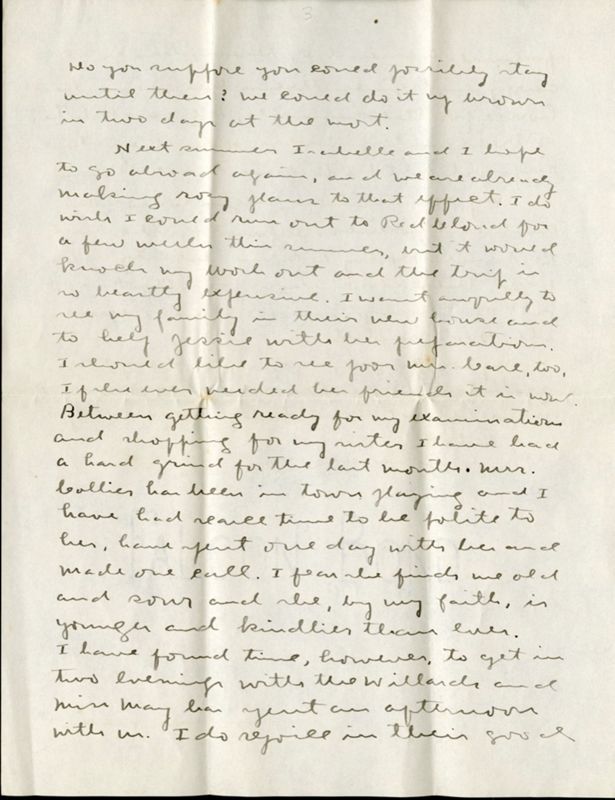 3
Do you suppose you could possibly stay
until then? We could do it up brown
in two days at the most.
Next summer Isabelle and I hope
to go abroad again, and we are already
making rosy plans to that effect. I do
wish I could run out to Red Cloud for
a few weeks this summer, but it would
knock my work out and the trip is
so beastly expensive. I want awfully to
see my family in their new house and
to help Jessie with her preparations.
I should like to see poor Mrs. Case, too,
If she ever needed her friends it is now.
Between getting ready for my examinations
and shopping for my sister I have had
a hard grind for the last month. Mrs.
Collier has been in town playing and I
have had scarce time to be polite to
her, have spent one day with her and
made one call. I fear she finds me old
and sour and she, by my faith, is
younger and kindlier than ever.
I have found time, however, to get in
two evenings with the Willards and
Miss May has spent an afternoon
with us. I do rejoice in their good